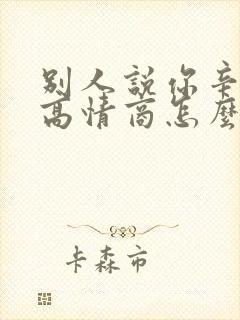 别人說你辛
高情商怎麼
卡森市